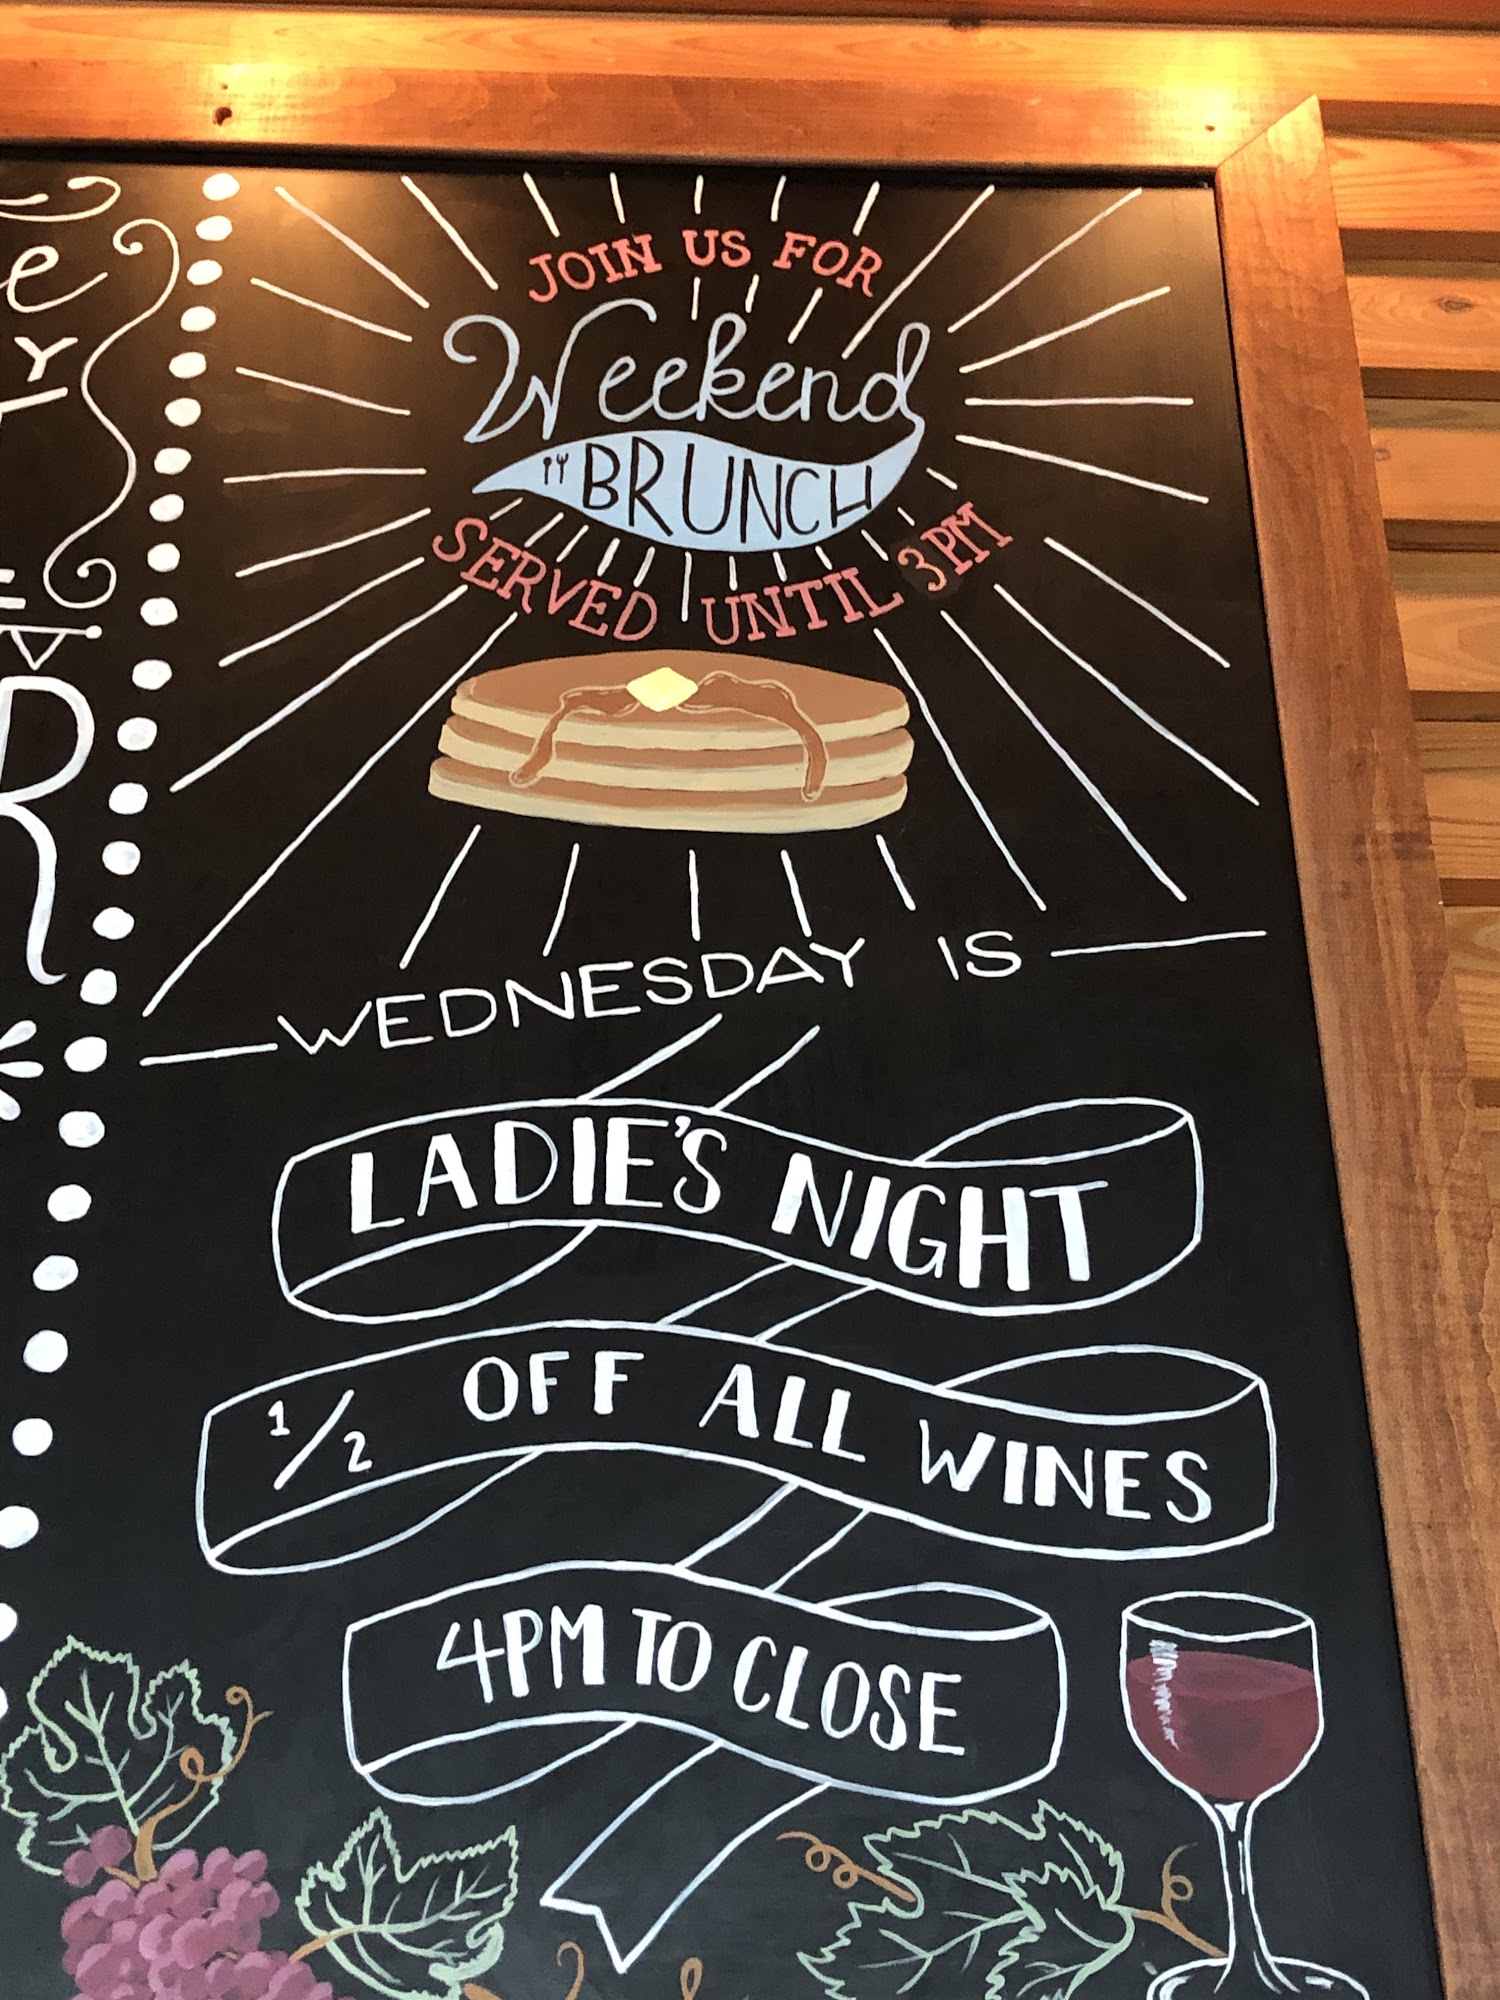 JOIN US FOR
Weekend
BRUNCH
SERVED UNTIL 3PM
WEDNESDAY IS
LADIE'S NIGHT
1/2 OFF ALL WINES
4PM TO CLOSE